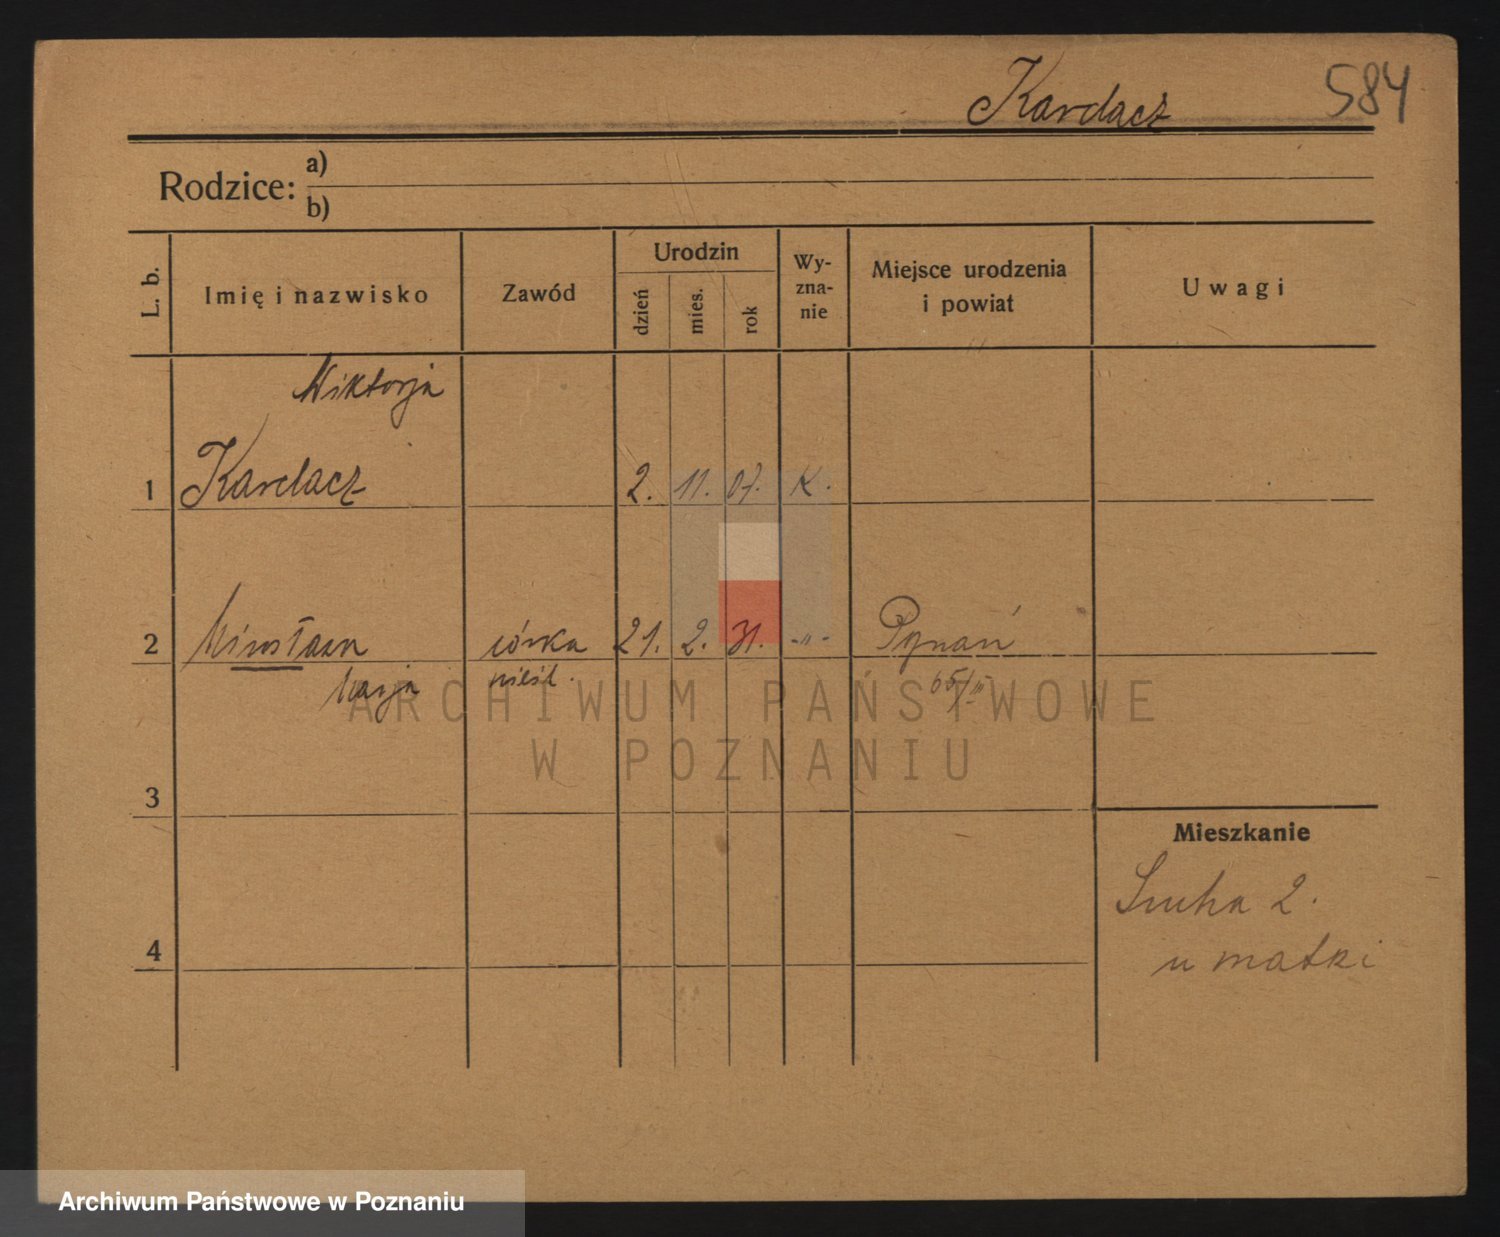 Kardacz 584
Rodzice: a)
b)
L. b. Imię i nazwisko Zawód Urodzin dzień mies. rok Wy-zna-nie Miejsce urodzenia i powiat Uwagi
Wiktorja
1 Kardacz 2. 11. 07. K.
2 Mirosława córka 21. 2. 31. -„- Poznań
Marja nieśl. 65/III
ARCHIWUM PAŃSTWOWE
W POZNANIU
3
Mieszkanie
Sucha 2.
4 u matki
Archiwum Państwowe w Poznaniu